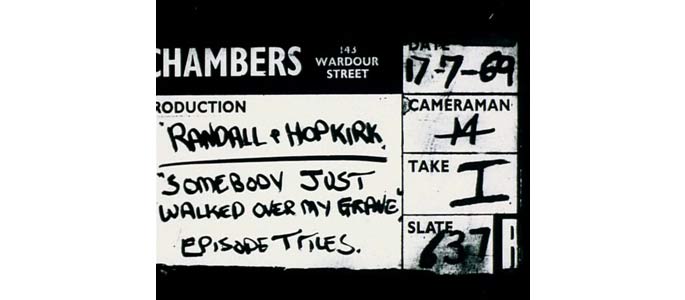 CHAMBERS
143
WARDOUR
STREET
DATE
17-7-69
RODUCTION
"RANDALL & HOPKIRK
CAMERAMAN
M
"SOMEBODY JUST
WALKED OVER MY GRAVE"
EPISODE TITLES.
TAKE
I
SLATE
637